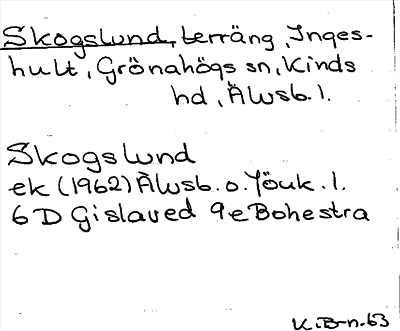 Skogslund, terräng, Inges-
hult, Grönahögs sn, Kinds
hd, Älvsb. l.
Skogslund
ek (1962) Älvsb. o. Jönk. l.
6 D Gislaved 9e Bohestra
K. B-n. 63